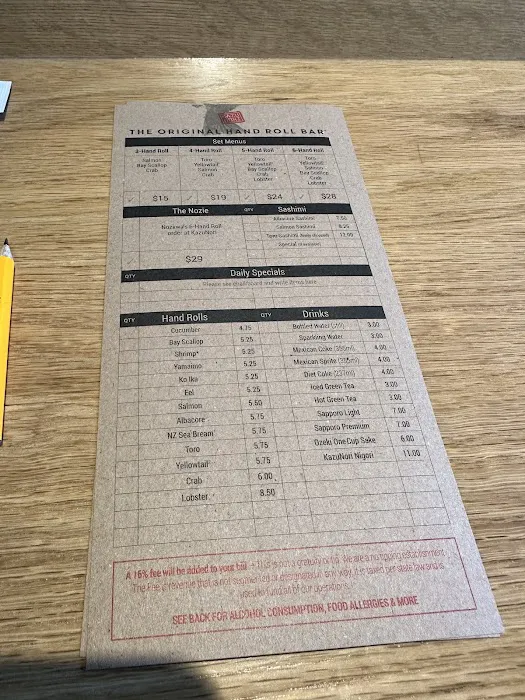 THE ORIGINAL HAND ROLL BAR
Set Menus
3-Hand Roll 4-Hand Roll 5-Hand Roll 6-Hand Roll
Salmon Toro Toro Toro
Bay Scallop Yellowtail Yellowtail Yellowtail
Crab Salmon Bay Scallop Salmon
Crab Crab Bay Scallop
Lobster Crab
Lobster
$15 $19 $24 $28
The Nozie QTY Sashimi
Nozawa's 6-Hand Roll
order at KazuNori
Albacore Sashimi 7.50
Salmon Sashimi 8.25
Toro Sashimi 12.00
Special
$29
QTY Daily Specials
Please see chalkboard and write items here
QTY Hand Rolls QTY Drinks
Cucumber 4.75 Bottled Water 3.00
Bay Scallop 5.25 Sparkling Water 3.00
Shrimp* 5.25 Mexican Coke (355ml) 4.00
Yamaimo 5.25 Mexican Sprite (355ml) 4.00
Ko Ika 5.25 Diet Coke (237ml) 4.00
Eel 5.25 Iced Green Tea 3.00
Salmon 5.50 Hot Green Tea 3.00
Albacore 5.75 Sapporo Light 7.00
NZ Sea Bream 5.75 Sapporo Premium 7.00
Toro 5.75 Ozeki One Cup Sake 6.00
Yellowtail 5.75 KazuNori Nigori 11.00
Crab 6.00
Lobster 8.50
A 16% fee will be added to your bill - This is not a gratuity or tip. We are a no tipping establishment.
The Fee is revenue that is not segregated or designated in any way, it is taxed per state law and is
used to fund all of our operations.
SEE BACK FOR ALCOHOL CONSUMPTION, FOOD ALLERGIES & MORE